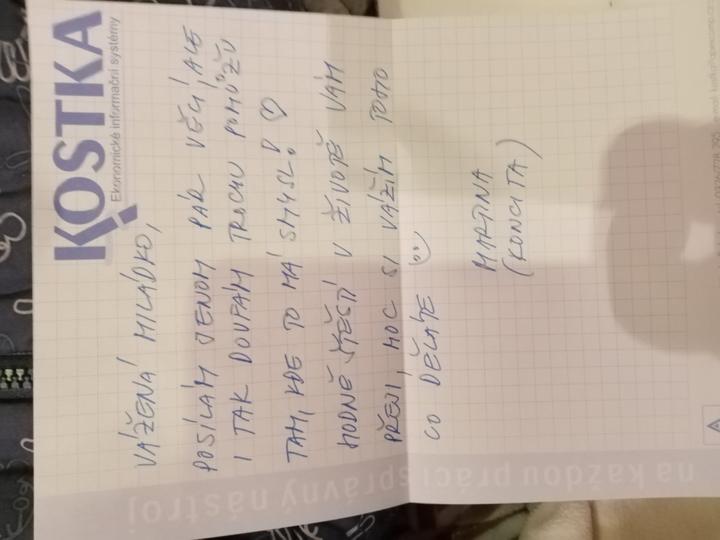 KOSTKA
Ekonomické informační systémy
VÁŽENÁ MILÁDKO,
POSÍLÁM JENOM PÁR VĚCÍ, ALE
I TAK DOUFÁM TROCHU POMŮŽU
TAM, KDE TO MÁ SMYSL! ♡
HODNĚ ŠTĚSTÍ V ŽIVOTĚ VÁM
PŘEJI, MOC SI VÁŽÍM TOHO
CO DĚLÁTE ☺
MARTINA
(KONCITA)
na každou práci správný nástroj